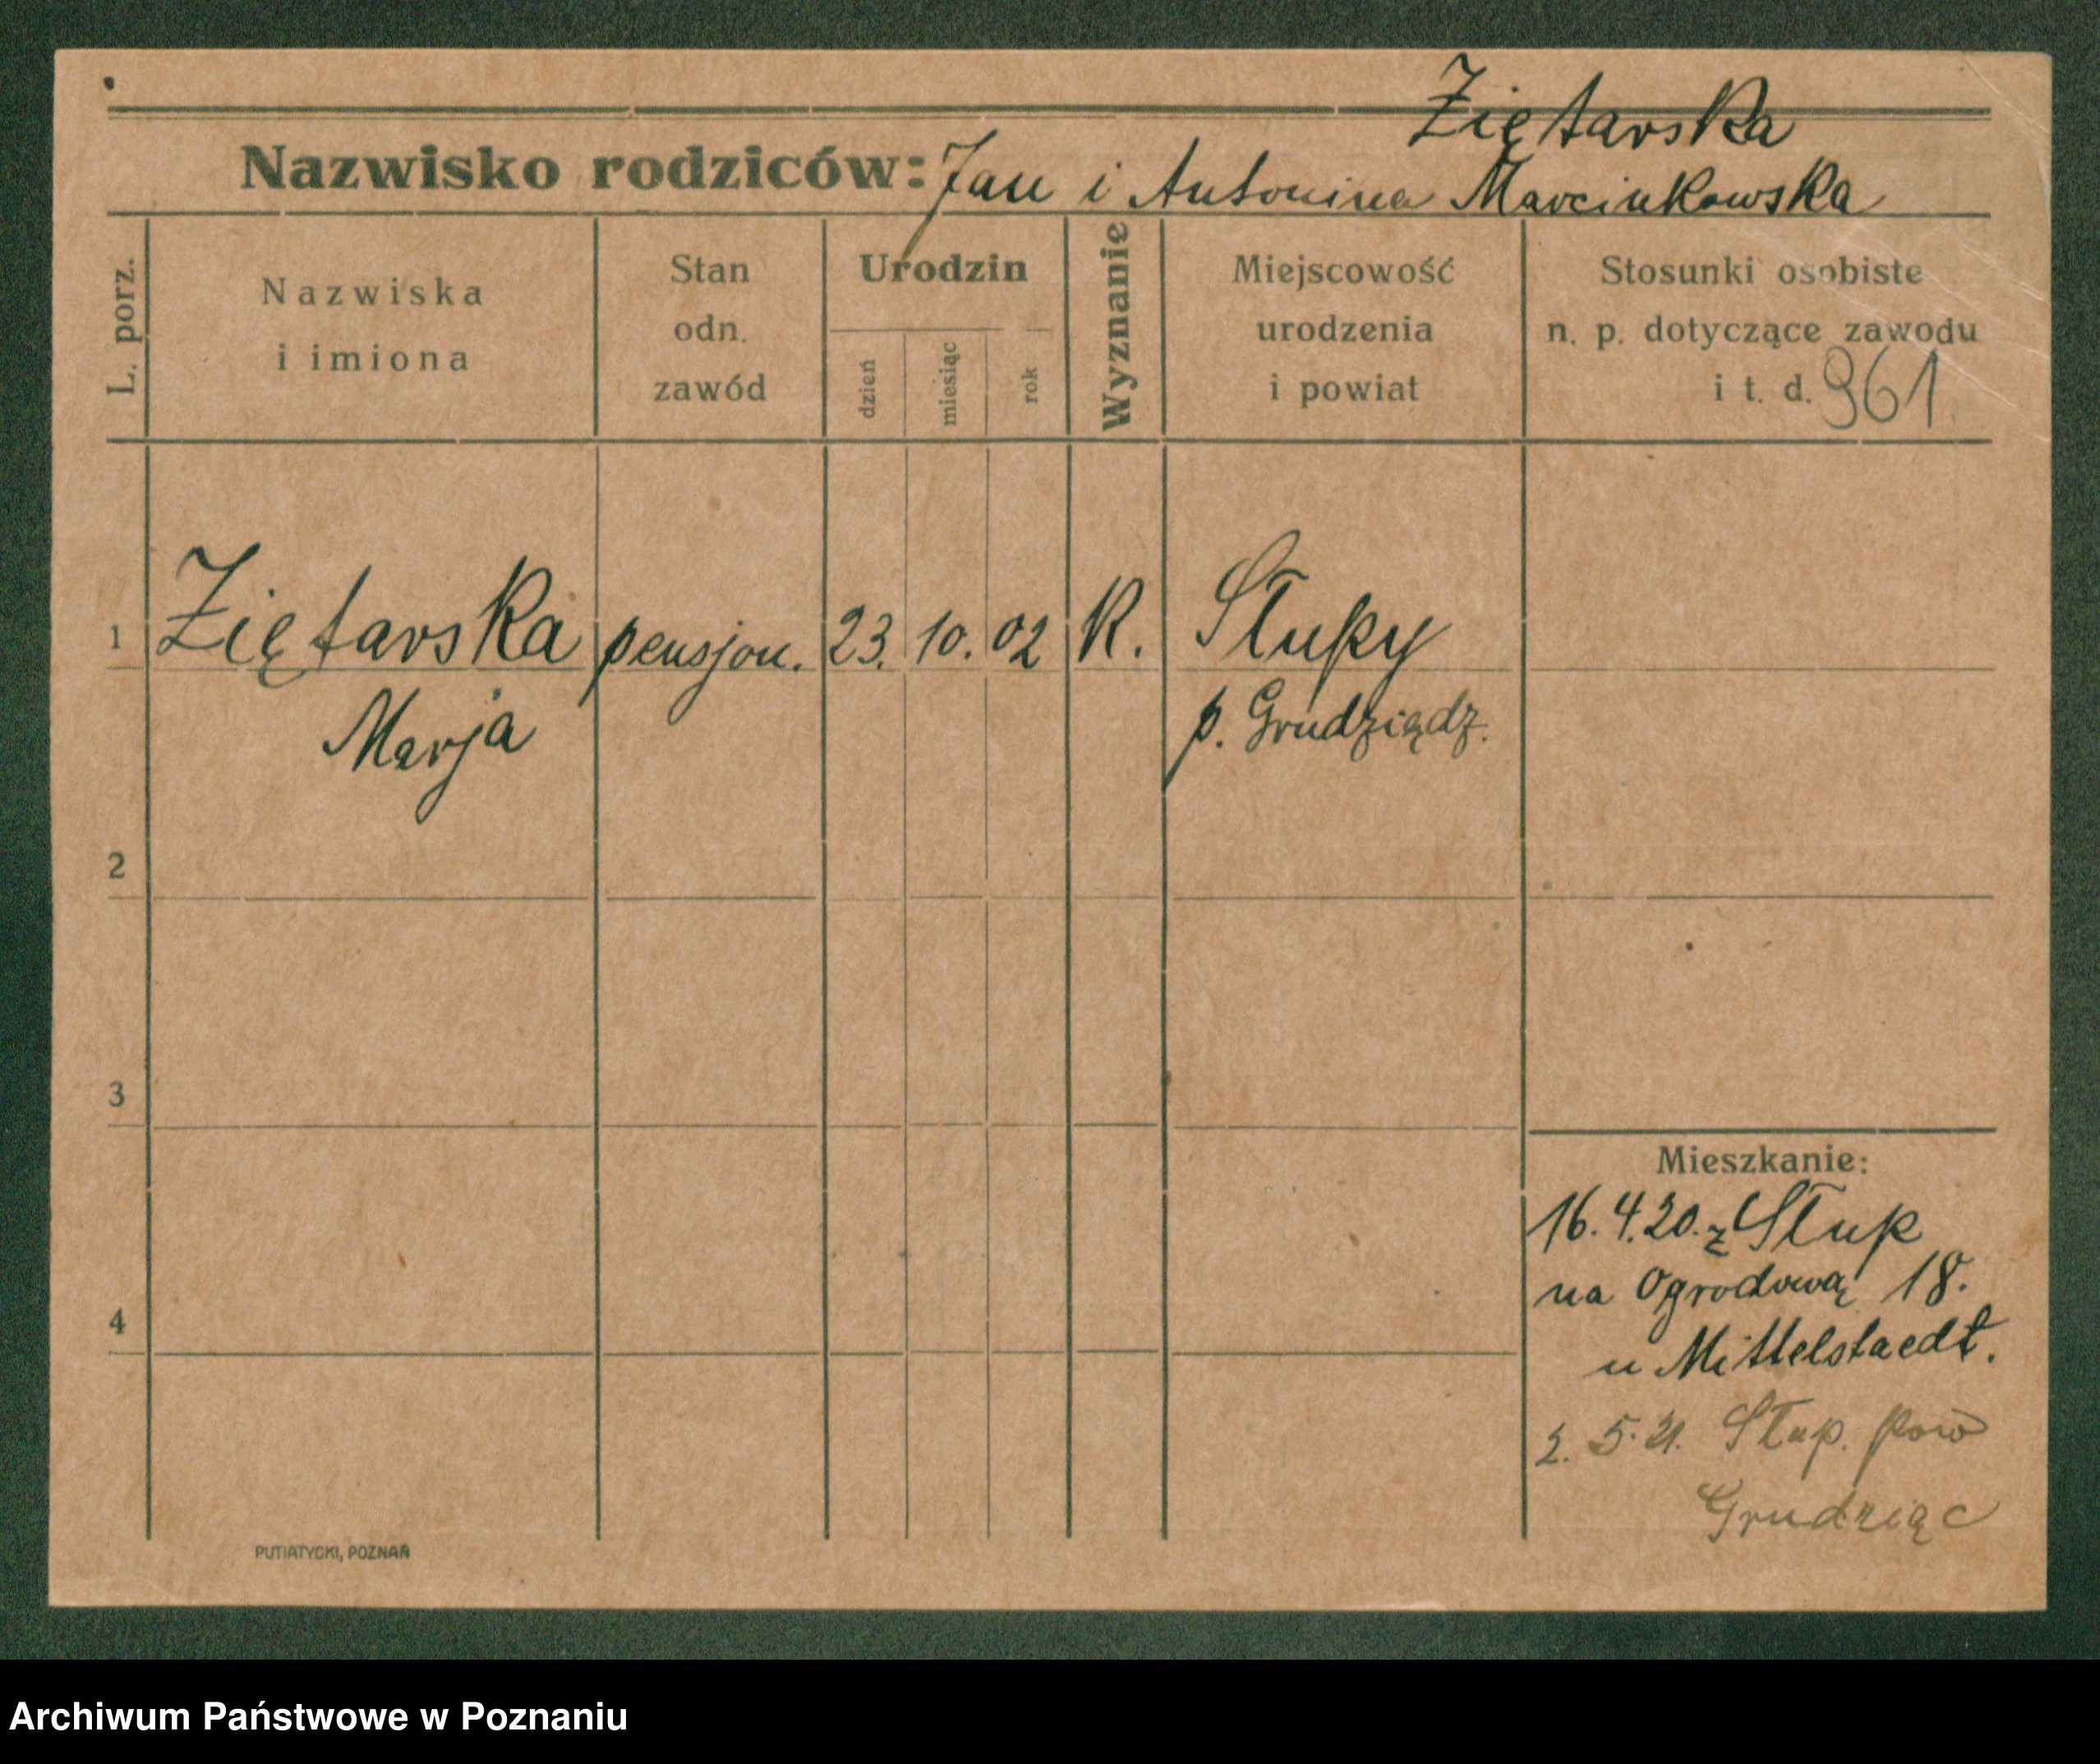 Ziętarska
Nazwisko rodziców: Jan i Antonina Marcinkowska
L. porz.
Nazwiska
i imiona
Stan
odn.
zawód
Urodzin
dzień
miesiąc
rok
Wyznanie
Miejscowość
urodzenia
i powiat
Stosunki osobiste
n. p. dotyczące zawodu
i t. d. 961
1 Ziętarska pensjon. 23. 10. 02 K. Słupy
Marja p. Grudziądz.
2
3
4
Mieszkanie:
16. 4. 20. z Słup
na Ogrodową 18.
u Mittelstaedt.
2. 5. 21. Słup. pow
Grudziąc
PUTIATYCKI, POZNAŃ
Archiwum Państwowe w Poznaniu